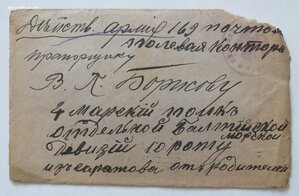 Действ. армія 169 почтов.
полевая контора
Прапорщику
В. К. Борисову
4 Марскій полкъ
отдельной Балтійской
морской
дивизіи 10 роту
изъ Саратова от родителей